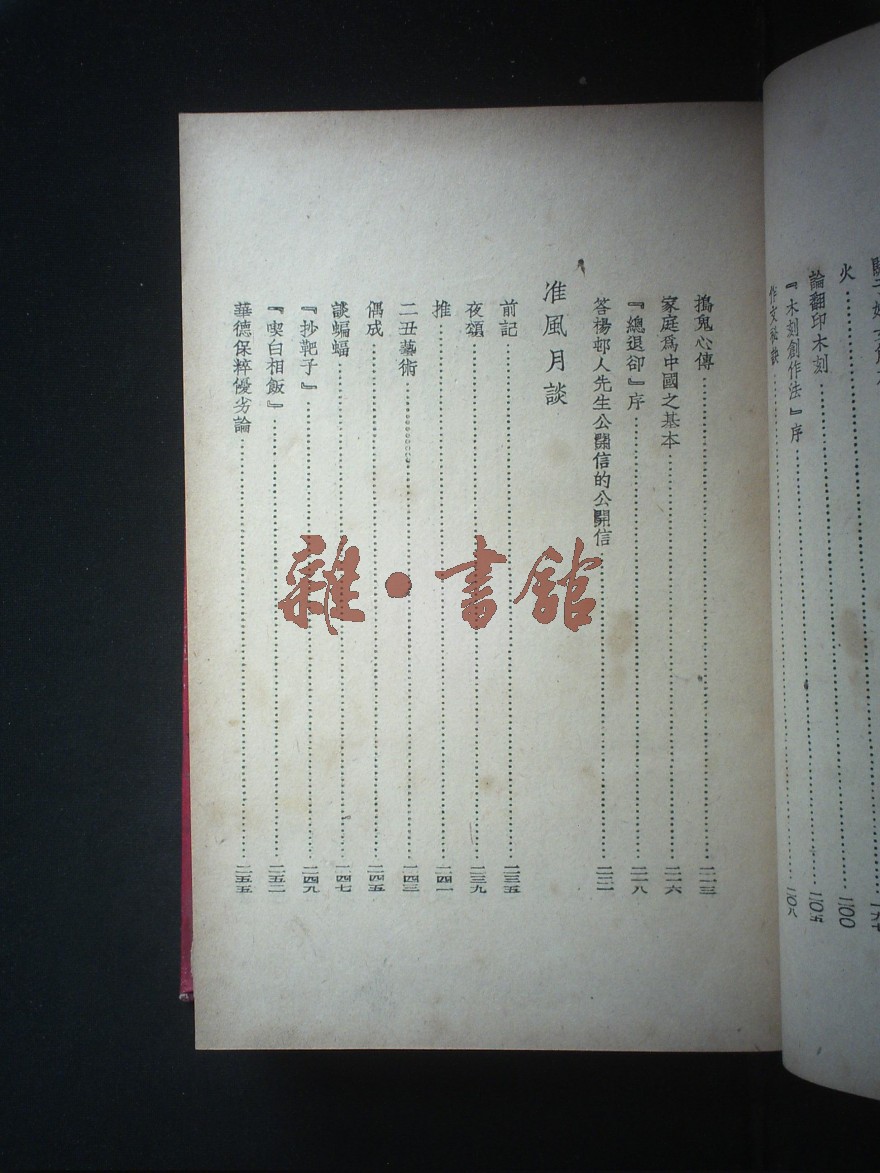 火……二〇〇
論翻印木刻……二〇五
『木刻創作法』序……二〇八
作文秘訣
搗鬼心傳……二一三
家庭爲中國之基本……二一六
『總退卻』序……二一八
答楊邨人先生公開信的公開信……二二一
准風月談
前記……二三五
夜頌……二三九
推……二四一
二丑藝術……二四三
偶成……二四五
談蝙蝠……二四七
『抄靶子』……二四九
『喫白相飯』……二五二
華德保粹優劣論……二五五
雜·書館